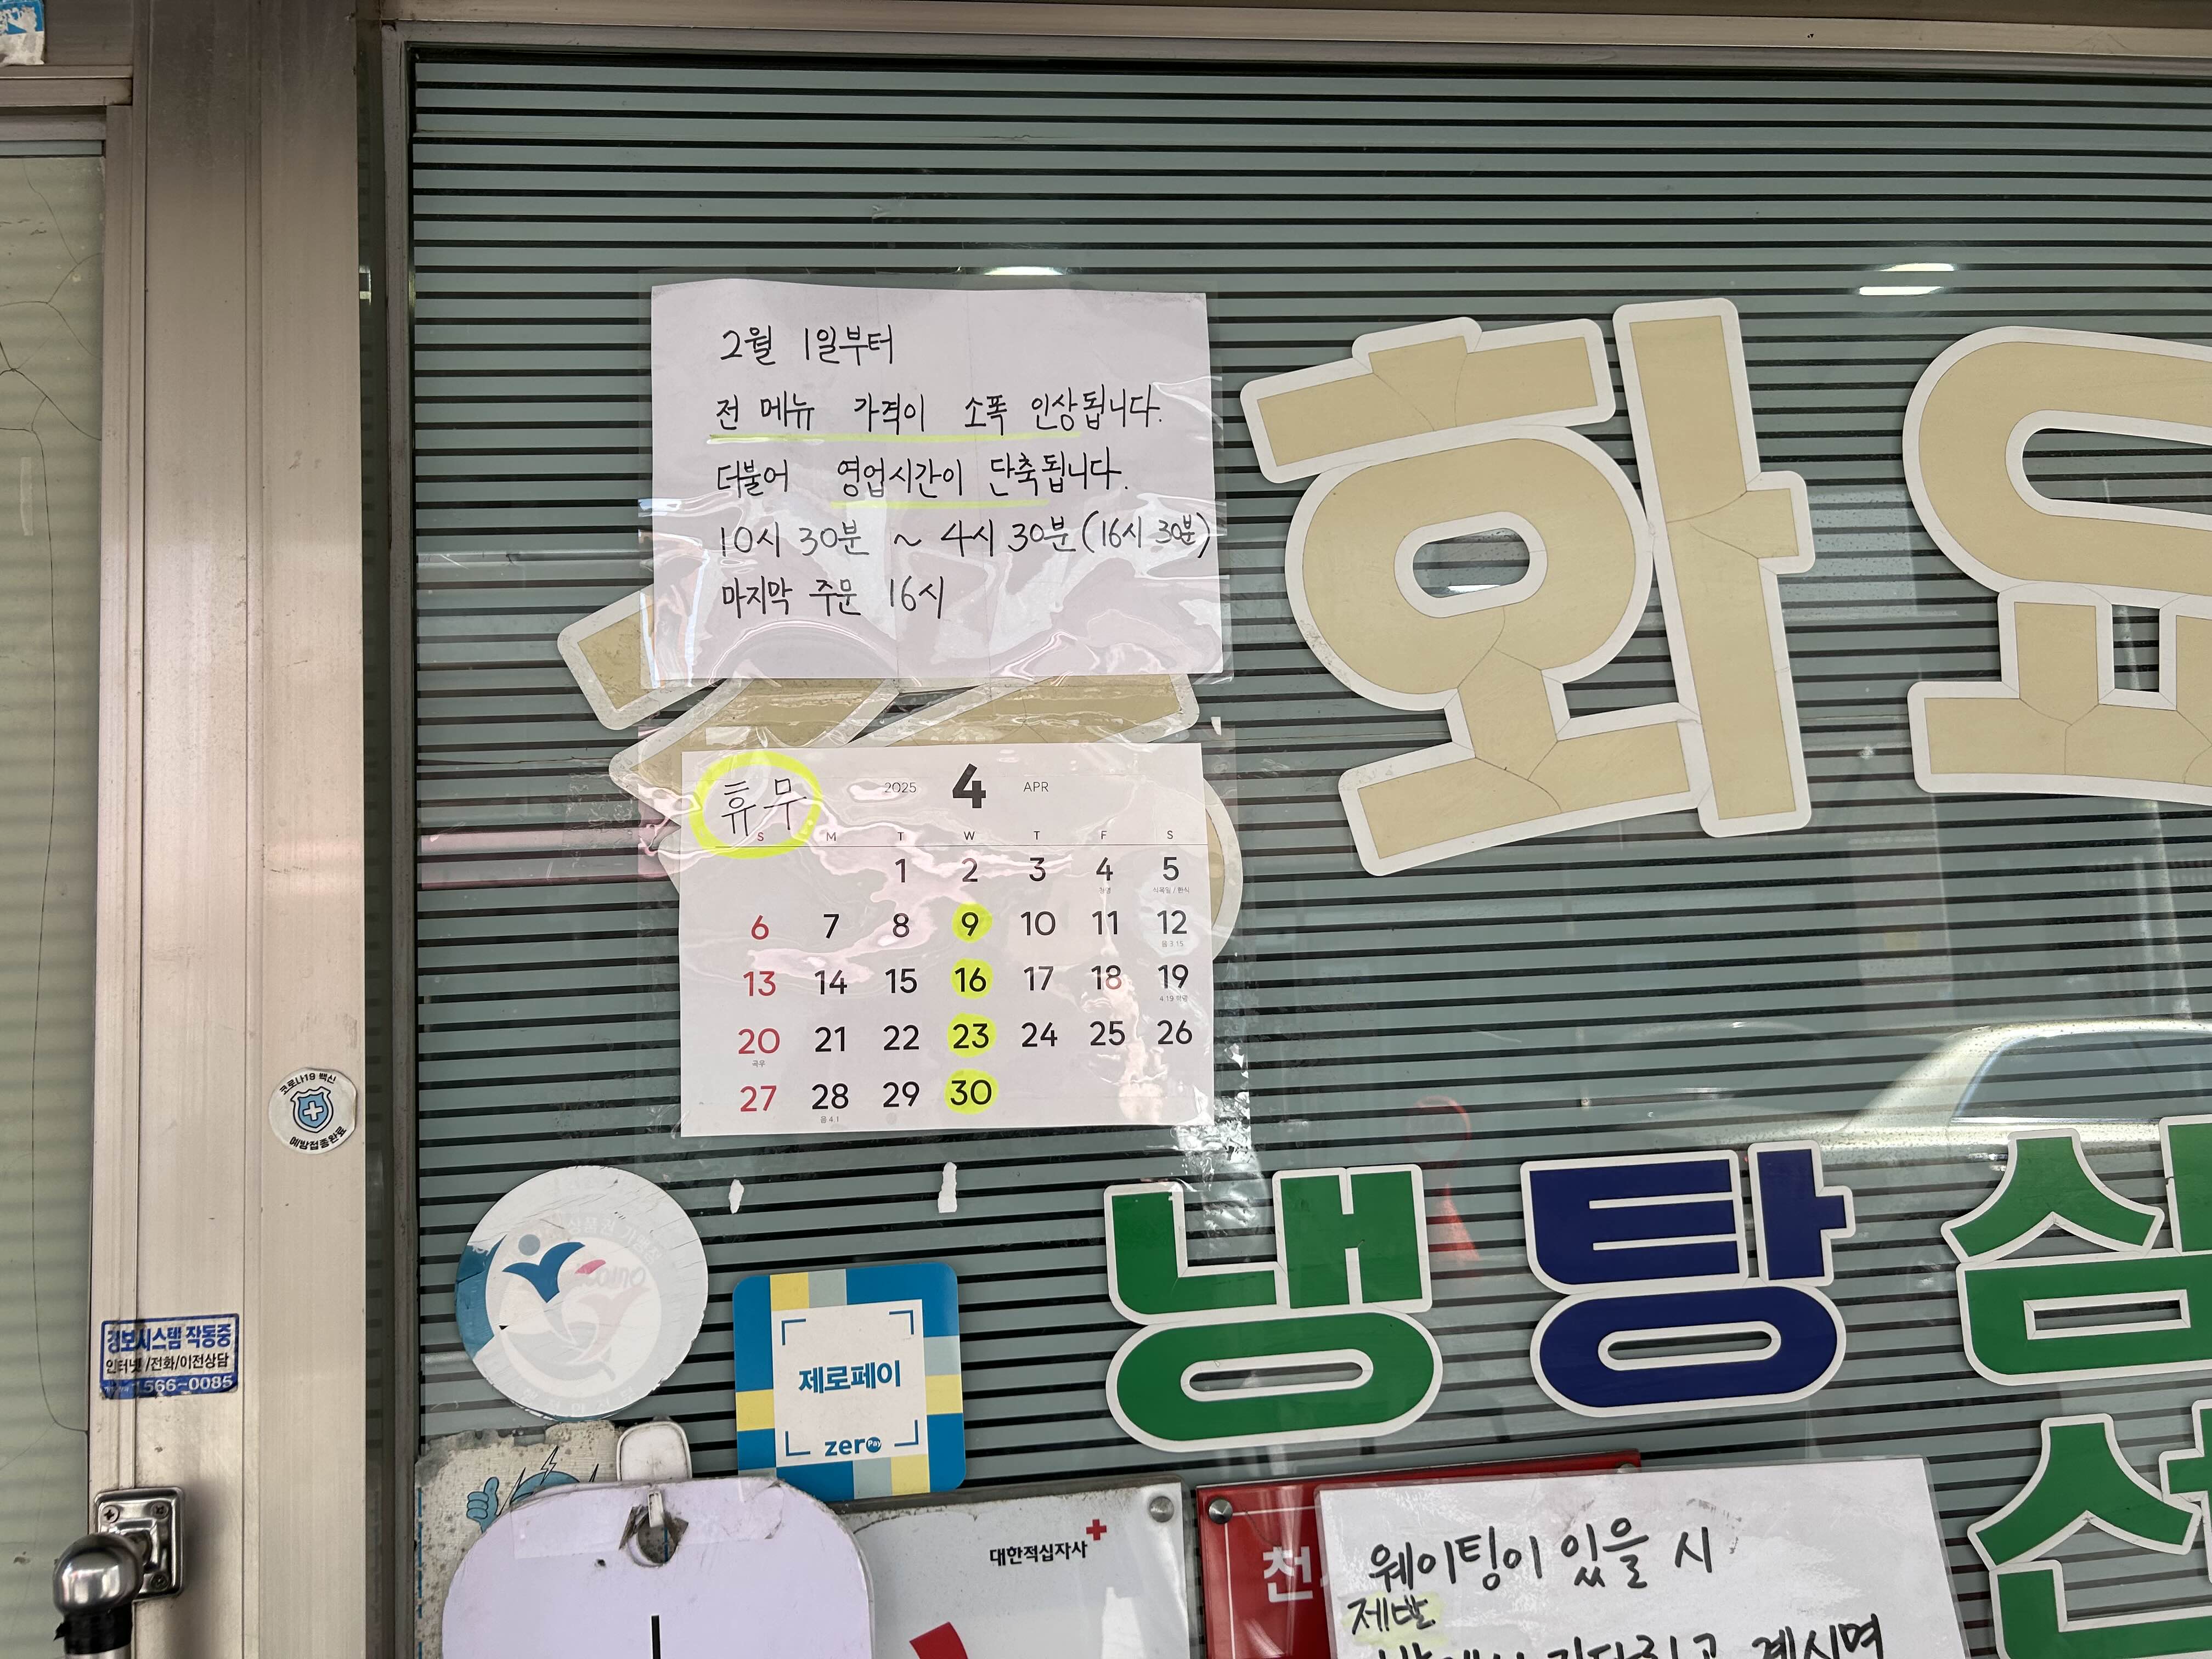 2월 1일부터
전 메뉴 가격이 소폭 인상됩니다.
더불어 영업시간이 단축됩니다.
10시 30분 ~ 4시 30분(16시 30분)
마지막 주문 16시
화요
휴무 2025 4 APR
S M T W T F S
1 2 3 4 5
식목일 / 한식
6 7 8 9 10 11 12
음 3.15
13 14 15 16 17 18 19
20 21 22 23 24 25 26
곡우
27 28 29 30
음 4.1
코로나19 백신
예방접종완료
냉 탕 삼
경보시스템 작동중
인터넷/전화/이전상담
1566-0085
제로페이
zero Pay
대한적십자사
천
웨이팅이 있을 시
제발